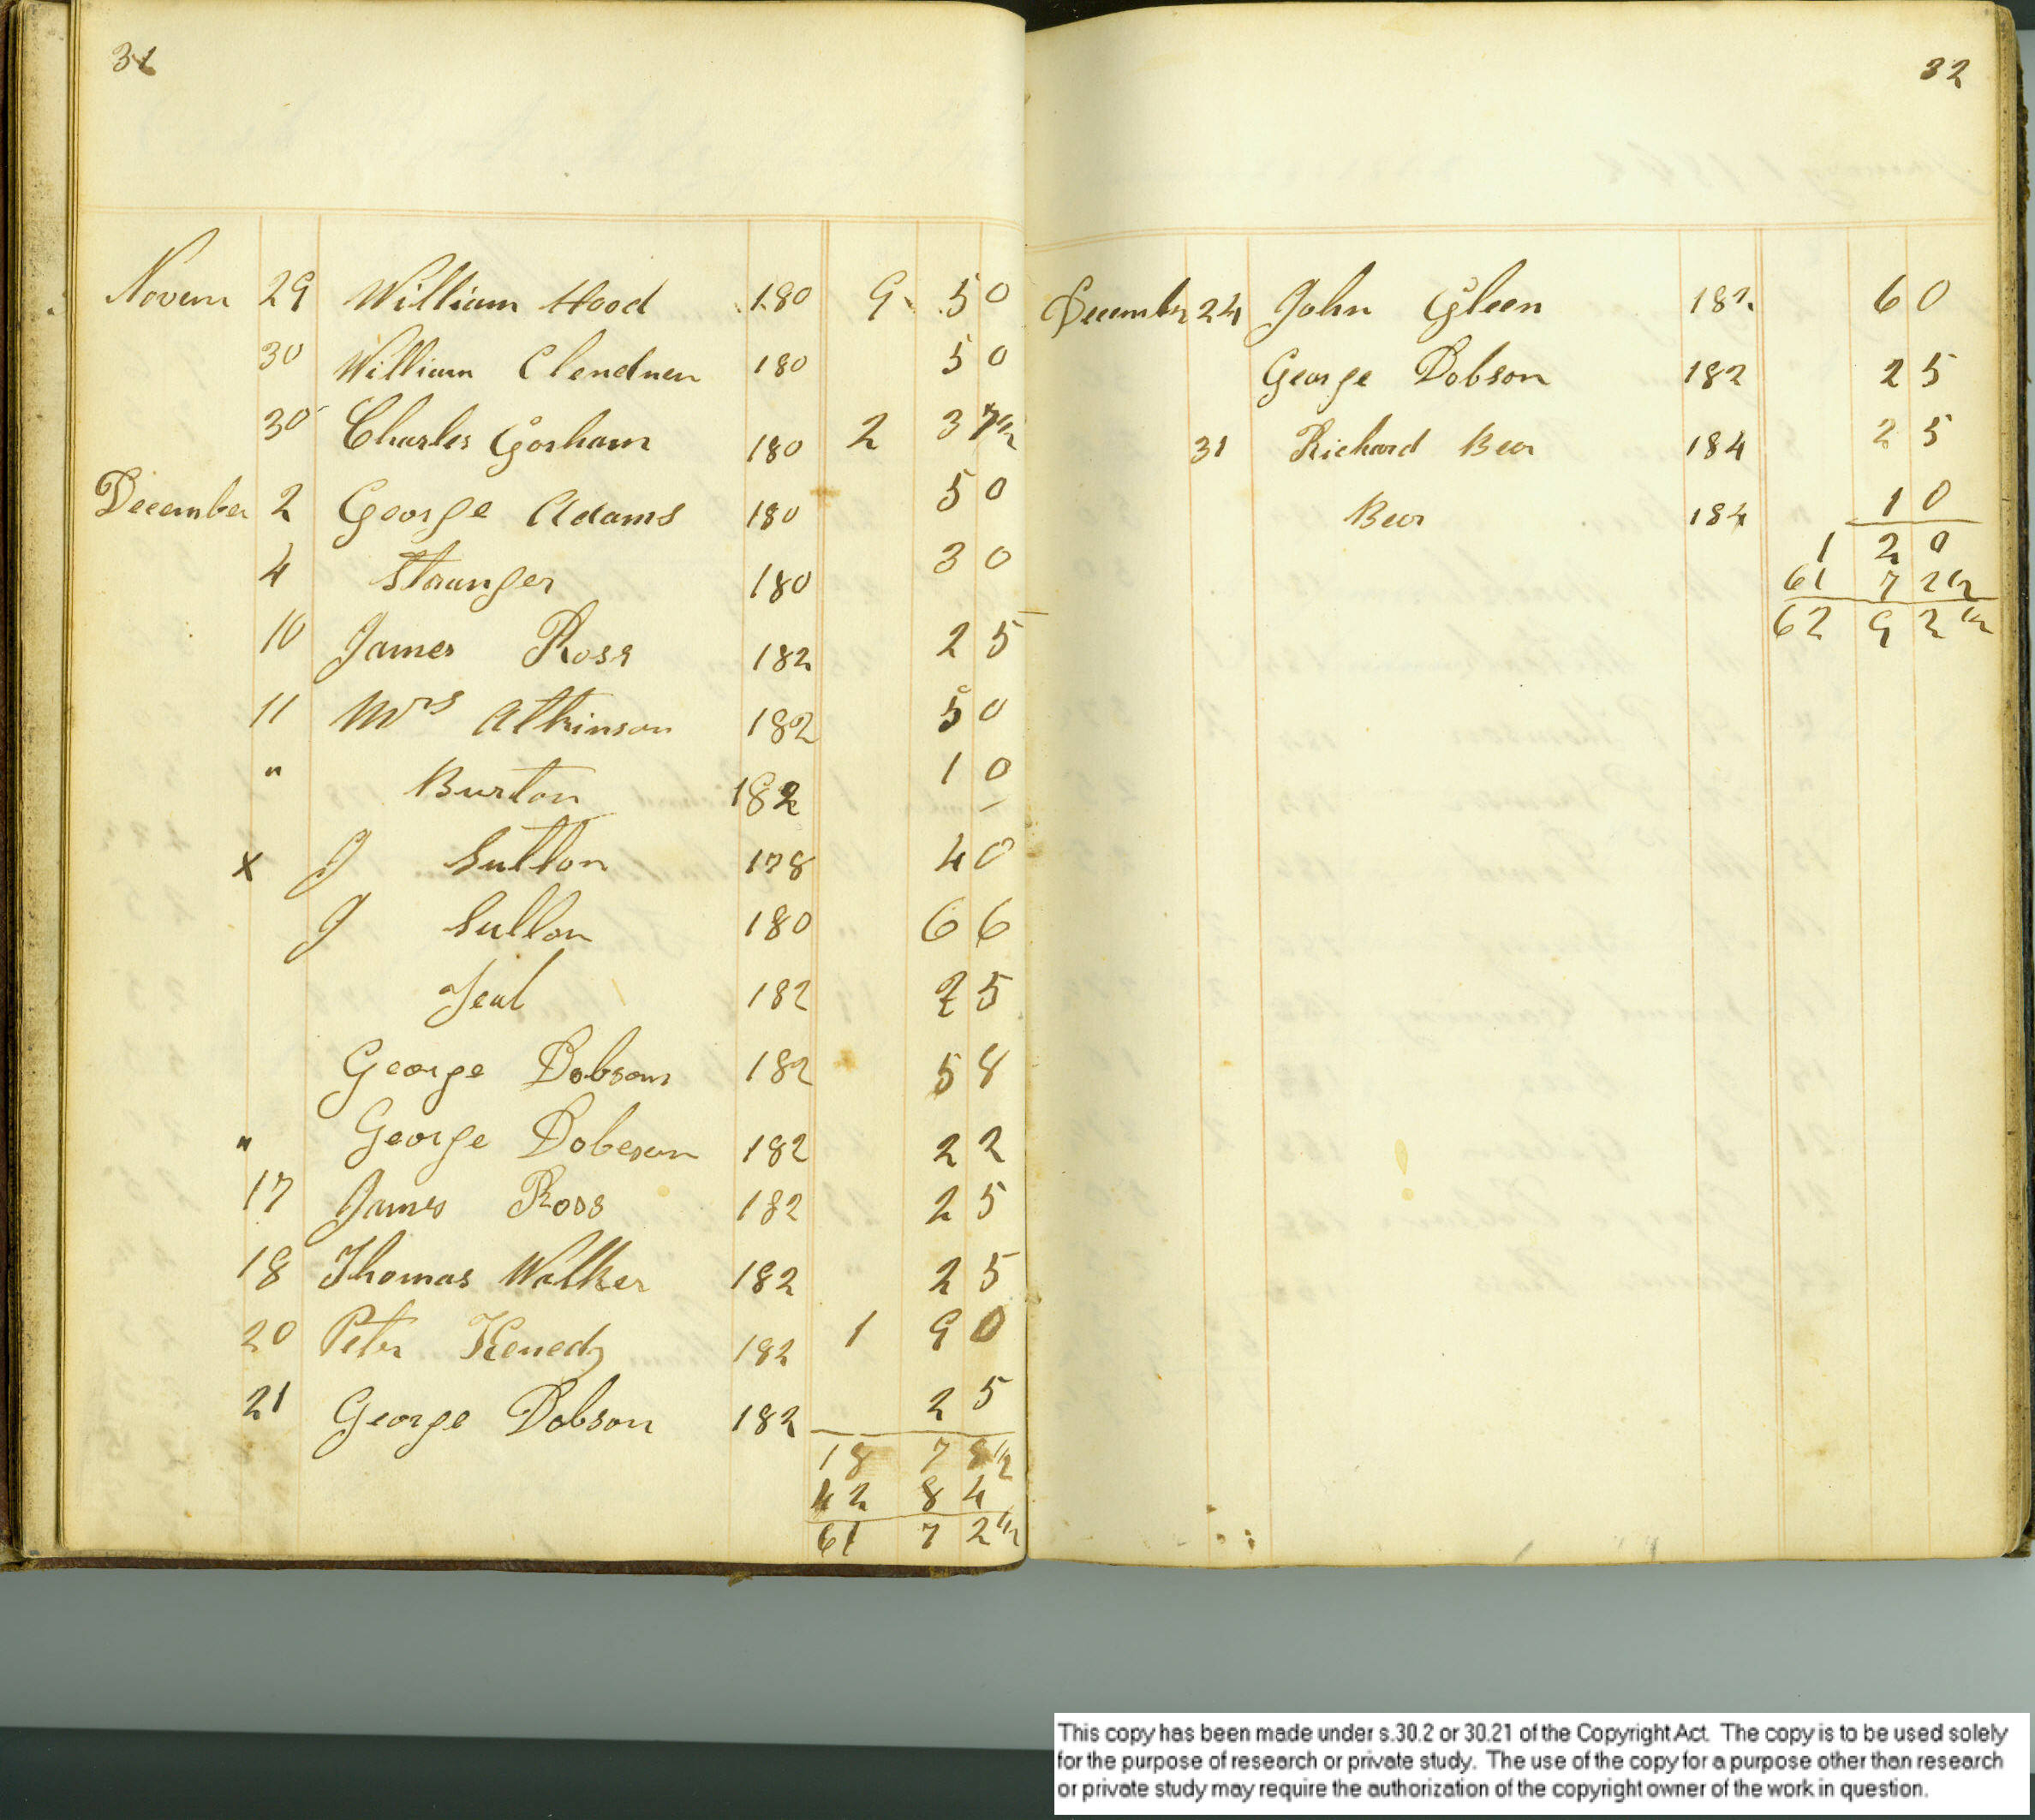 31
Novem 29 William Hood 180 9 50
30 William Clendnen 180 50
30 Charles Gorham 180 2 37 1/2
December 2 George Adams 180 50
4 Straunger 180 30
10 James Ross 182 25
11 Mrs Atkinson 182 50
" Burton 182 10
x J Sutton 178 40
J Sutton 180 66
Teal 182 25
George Dobson 182 58
" George Dobeson 182 22
17 James Ross 182 25
18 Thomas Walker 182 25
20 Peter Kenedy 182 1 90
21 George Dobson 182 25
18 78 1/2
42 84
61 72 1/2
32
December 24 John Gleen 182 60
George Dobson 182 25
31 Richard Bear 184 25
Bear 184 10
1 20
61 72 1/2
62 92 1/2
This copy has been made under s.30.2 or 30.21 of the Copyright Act. The copy is to be used solely
for the purpose of research or private study. The use of the copy for a purpose other than research
or private study may require the authorization of the copyright owner of the work in question.